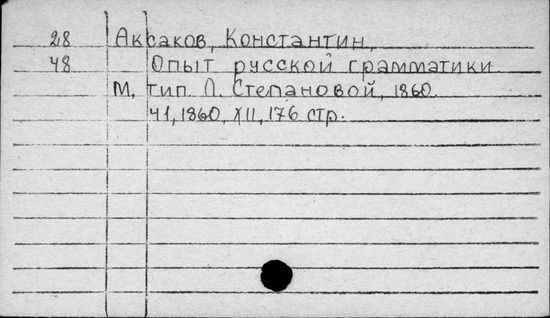 28 Аксаков, Константин,
48 Опыт русской грамматики
М, тип. Л. Степановой, 1860
Ч1, 1860, XII, 176 стр.